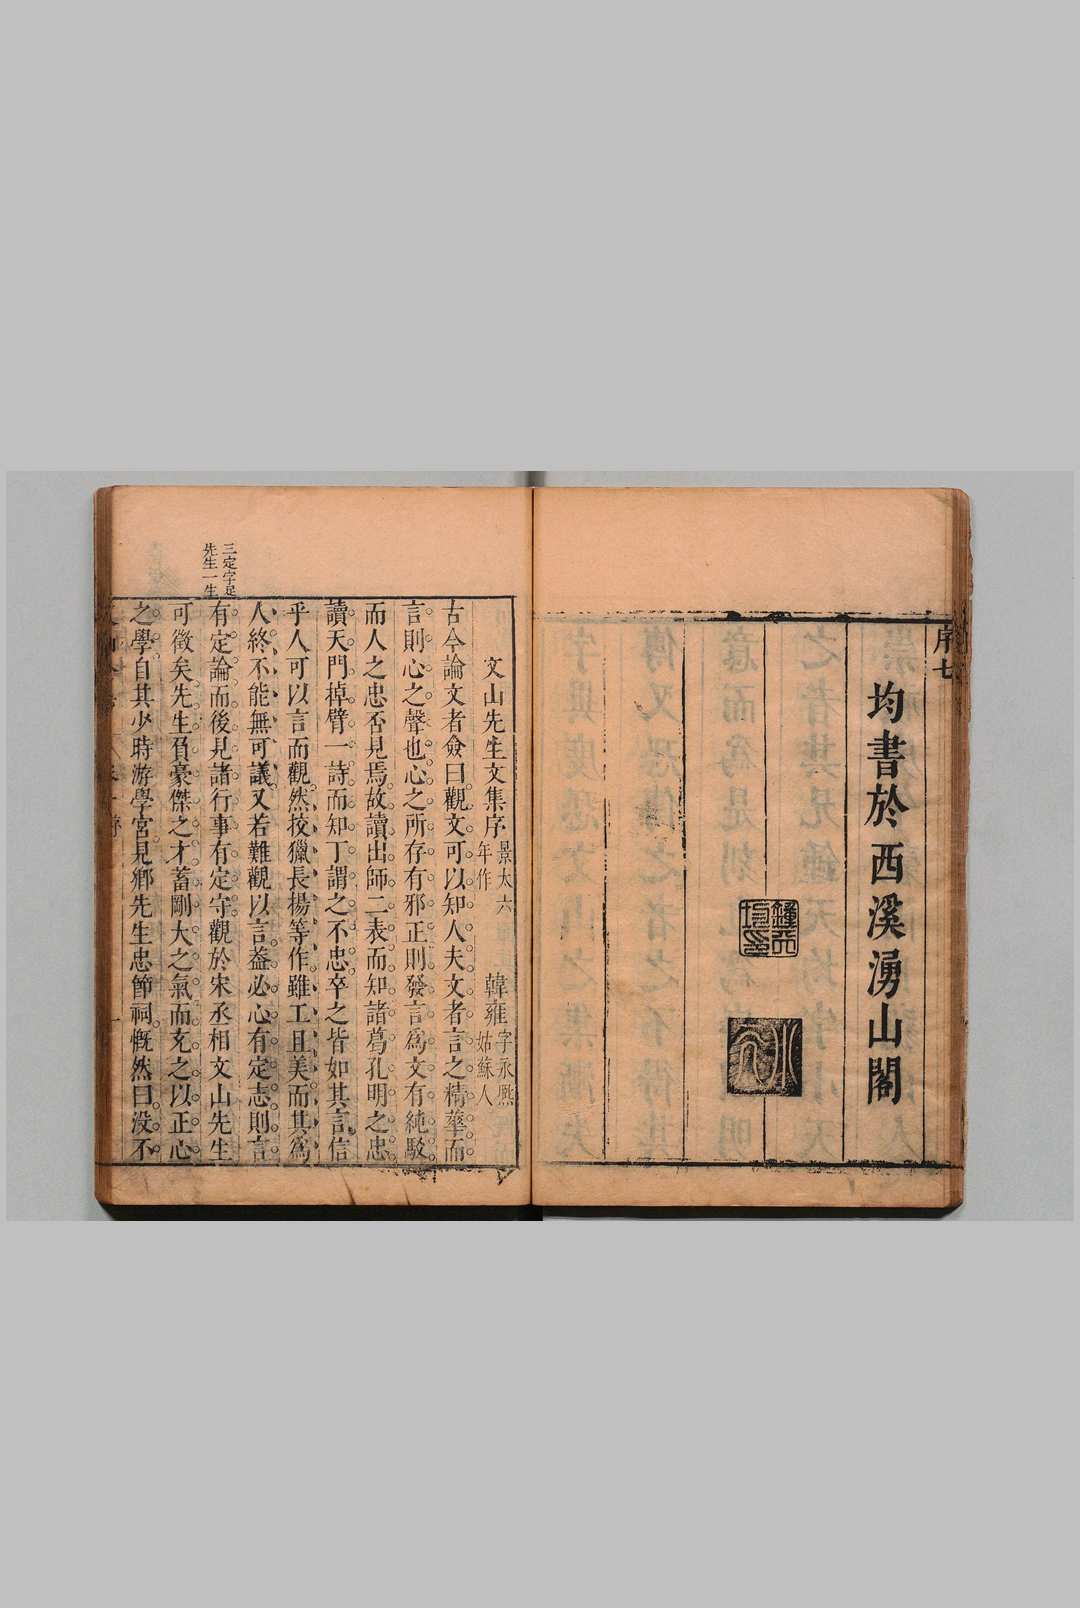 序七
均書於西溪湧山閣
文山先生文集序 景太六年作 韓雍 字永熙 姑蘇人
古今論文者僉曰觀文可以知人夫文者言之精華而
言則心之聲也心之所存有邪正則發言為文有純駁
而人之忠否見焉故讀出師二表而知諸葛孔明之忠
讀天門掉臂一詩而知丁謂之不忠卒之皆如其言信
乎人可以言而觀然挍獵長揚等作雖工且美而其為
人終不能無可議又若難觀以言葢必心有定志則言
有定論而後見諸行事有定守觀於宋丞相文山先生
可徵矣先生負豪傑之才蓄剛大之氣而充之以正心
之學自其少時游學宮見鄉先生忠節祠慨然曰没不
三定字足
先生一生